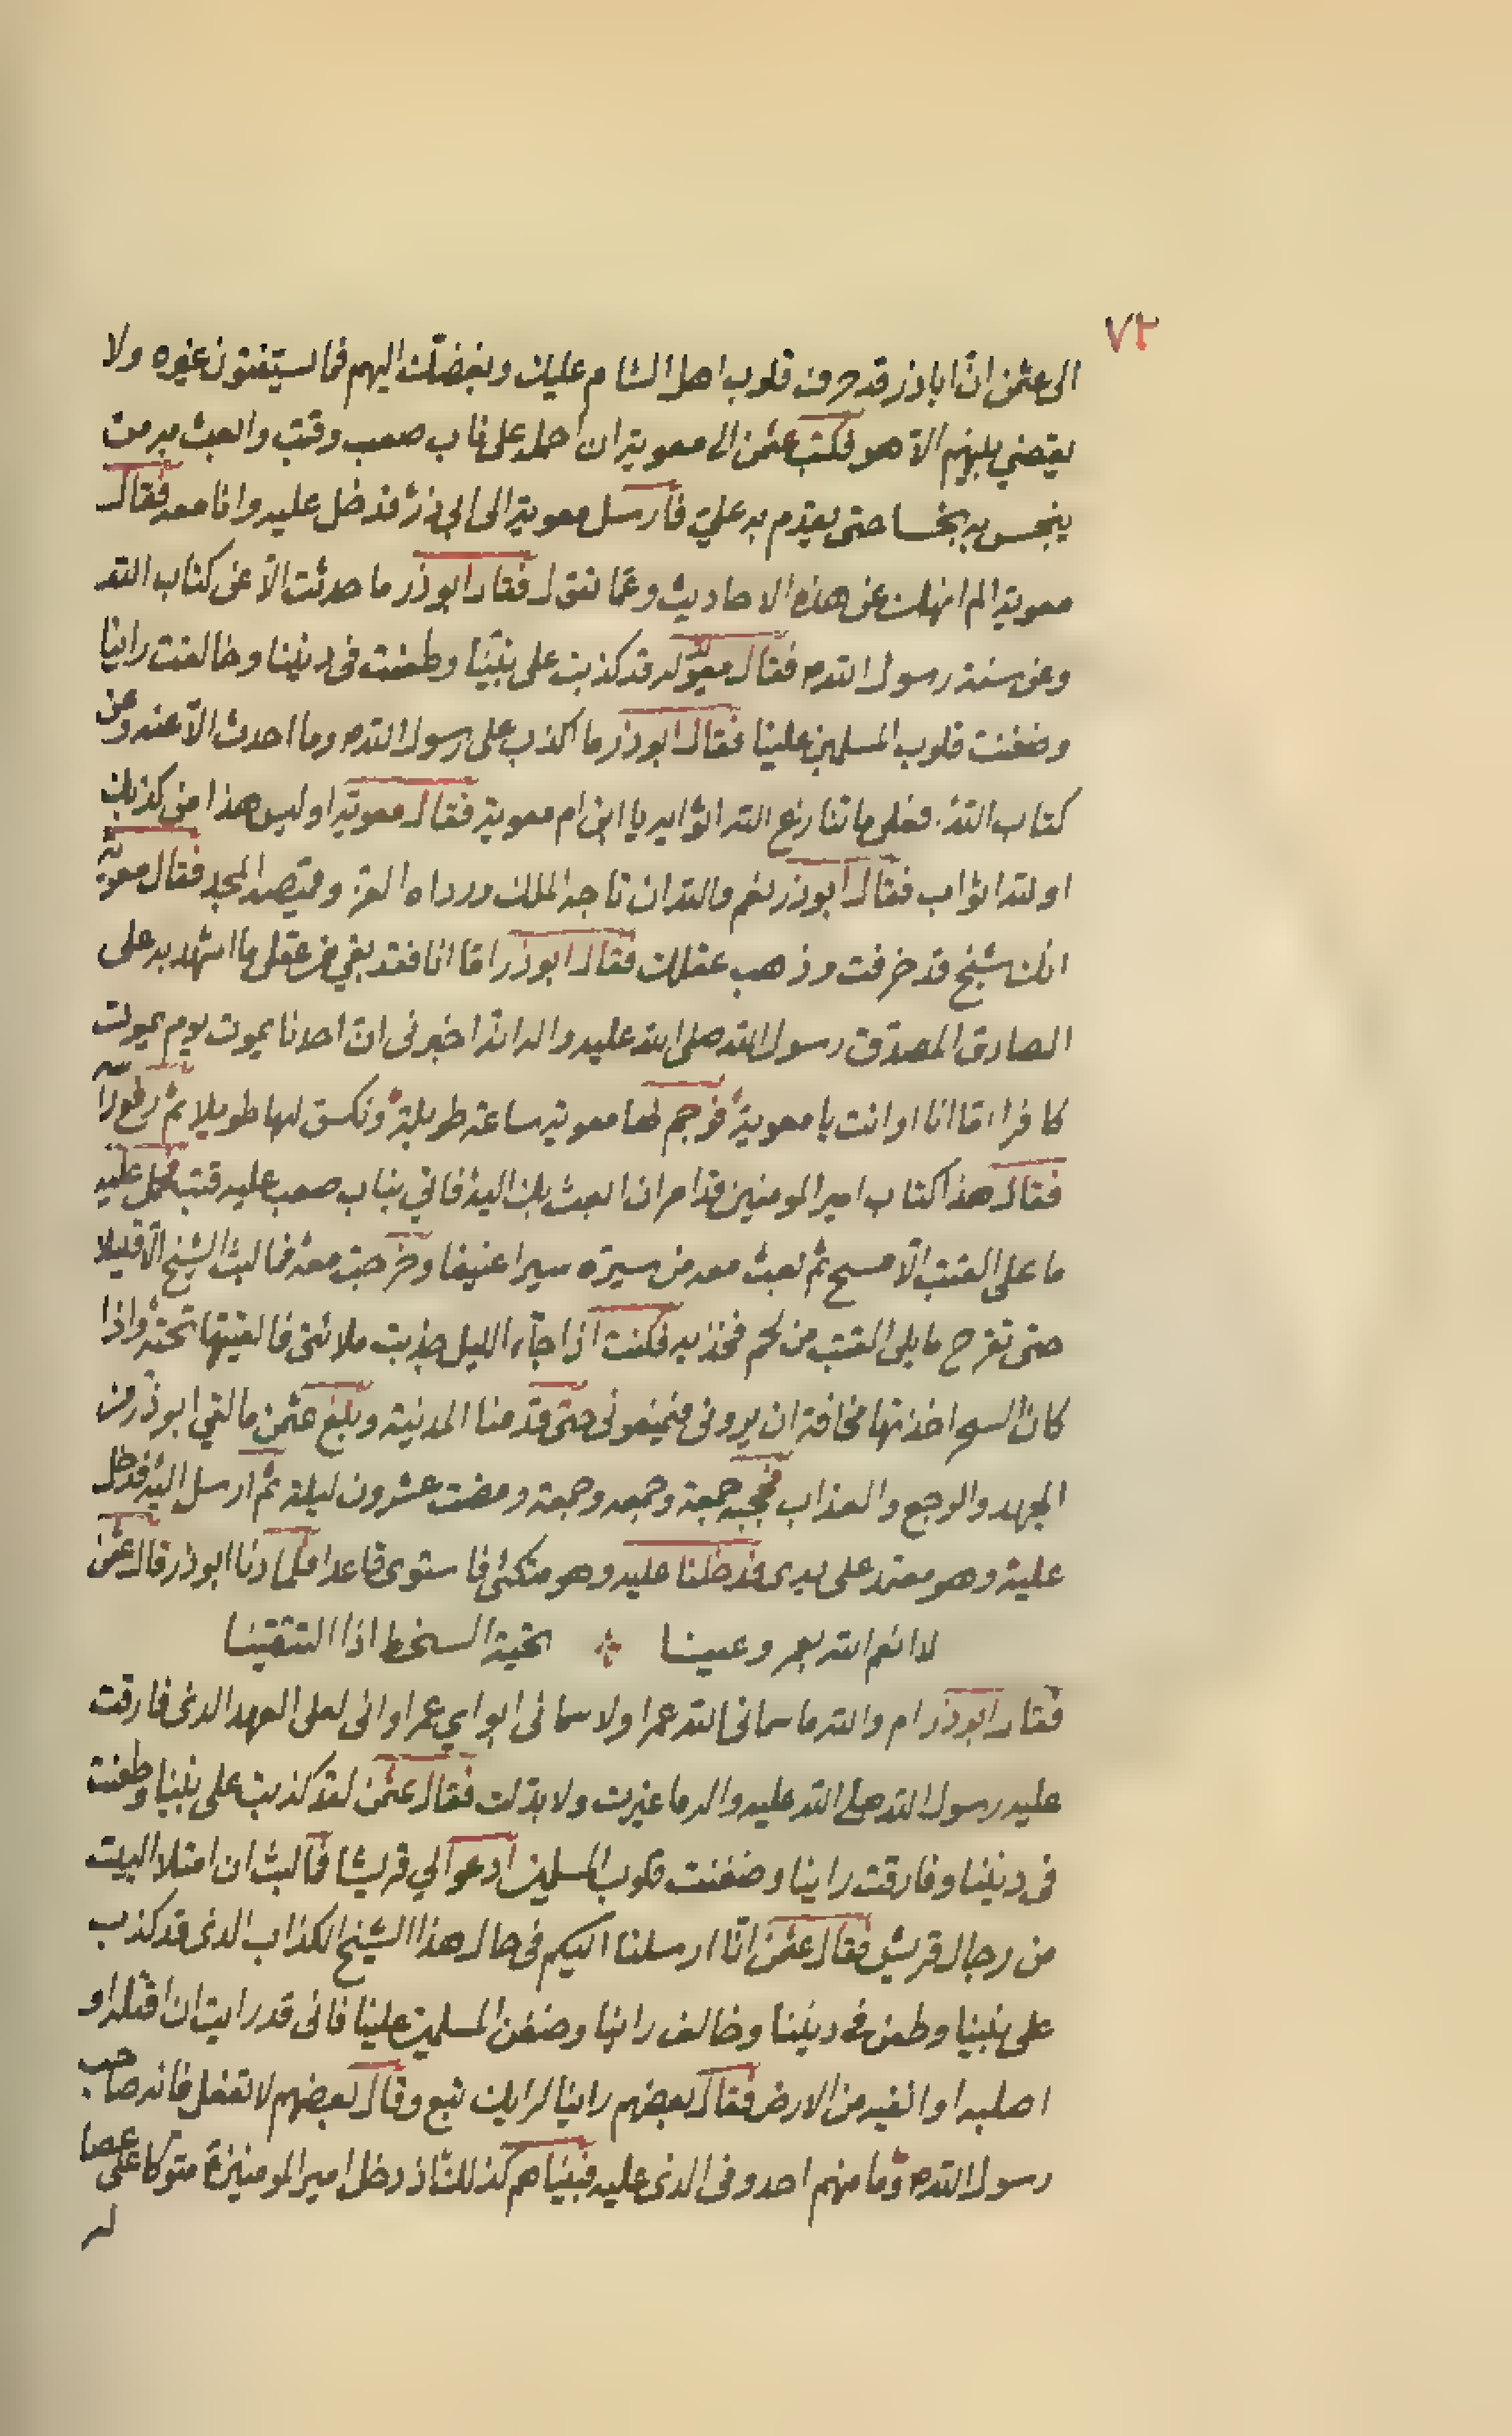 ٧٢
الى عثمن انّ اباذر قد حرف قلوب اهل الشام عليك وبغضك اليهم فما يستفتون غيره ولا
يقضي بينهم الّا هو فكتب عثمن الى معوية ان احمله على ناب صعب وقتب وابعث به من
ينجس به نجسا حتى يقدم به عليّ فارسل معوية الى ابي ذرّ فدخل عليه وانا معه فقال
معوية الم انهك عن هذه الاحاديث وعمّا تقول فقال ابوذر ما حدثت الّا عن كتاب الله
وعن سنة رسول الله ص فقال معوية له قد كذبت على نبيّنا وطعنت في ديننا وخالفت راينا
وضغنت قلوب المسلمين علينا فقال ابوذر ما اكذب على رسول الله ص وما احدث الّا عنه وعن
كتاب الله فعلى ما تنازع الله اثوابه يا ابن ام معوية فقال معوية اوليس هذا من كذبك
او لله اثواب فقال ابوذر نعم والله ان تاجه الملك ورداه العز وقميصه المجد فقال معوية
انك شيخ قد خرفت وذهب عقلك فقال ابوذر امّا انا فقد بقي من عقلي ما اشهد به على
الصادق المصدّق رسول الله صلى الله عليه واله انّه اخبرني انّ احدنا يموت يوم يموت
كافرا امّا انا او انت يا معوية فوجم لها معوية ساعة طويلة ونكس لها طويلا ثمّ رفع راسه
فقال هذا كتاب امير المومنين قد امر ان ابعث بك اليه فاتي بناب صعب عليه قتب فحمل عليه
ما على القتب الّا مسح ثمّ بعث معه من سيّره سيرا عنيفا وخرجت معه فما لبث الشيخ الّا قليلا
حتى تقرح ما يلي القتب من لحم فخذيه فكنت اذا جآء الليل جذبت ملائتي فالقيتها تحته واذا
كان السحر اخذتها مخافة ان يروني فيمنعوني حتى قدمنا المدينة وبلغ عثمن ما لقي ابوذر من
الجهد والوجع والعذاب فحجبه جمعة وجمعه وجمعة ومضت عشرون ليلة ثمّ ارسل اليه فدخل
عليه وهو معتمد على يدي فدخلنا عليه وهو متكئ فاستوى قاعدا فلما دنا ابوذر قال عثمن
لا انعم الله بعمرو عينا ❖ تحية السخط اذا التقينا
فقال ابوذر ام والله ما سماني الله عمرا ولا سماني ابواي عمرا واني لعلى العهد الذي فارقت
عليه رسول الله صلى الله عليه واله ما غيرت ولا بدّلت فقال عثمن لقد كذبت على نبينا وطعنت
في ديننا وفارقت راينا وضغنت قلوب المسلمين ادعوا لي قريشا فما لبث ان امتلا البيت
من رجال قريش فقال عثمن انّا ارسلنا اليكم في حال هذا الشيخ الكذاب الذي قد كذب
على نبينا وطعن في ديننا وخالف راينا وضغن المسلمين علينا فاني قد رايت ان اقتله او
اصلبه او انفيه من الارض فقال بعضهم راينا لرايك تبع وقال بعضهم لا تفعل فانه صاحب
رسول الله ص وما منهم احد وفي الذي عليه فبيناهم كذلك اذ دخل امير المومنين ع متوكا على عصا
له